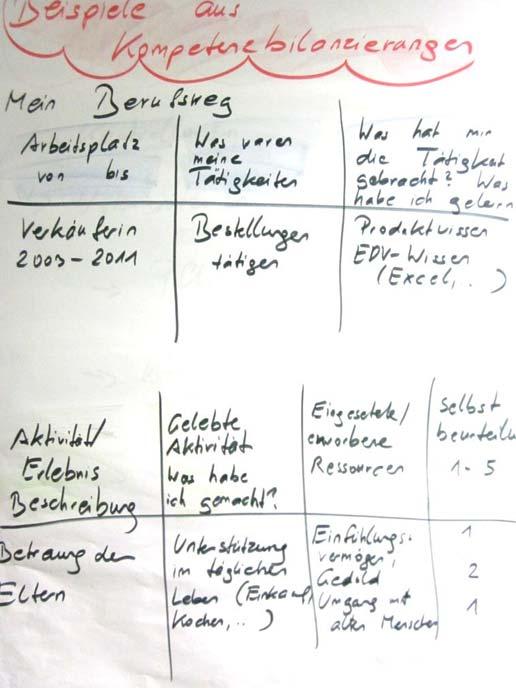 Beispiele aus
Kompetenzbilanzierungen
Mein Berufsweg
Arbeitsplatz
von bis
Was waren
meine
Tätigkeiten
Was hat mir
die Tätigkeit
gebracht? Was
habe ich gelern
Verkäuferin
2003-2011
Bestellungen
tätigen
Produktwissen
EDV-Wissen
(Excel, ..)
Aktivität/
Erlebnis
Beschreibung
Gelebte
Aktivität
Was habe
ich gemacht?
Eingesetzte/
erworbene
Ressourcen
Selbst
beurteilu
1-5
Betreuung der
Eltern
Unterstützung
im täglichen
Leben (Einkauf,
Kochen, ..)
Einfühlungs-
vermögen,
Geduld
Umgang mit
alten Menschen
1
2
1